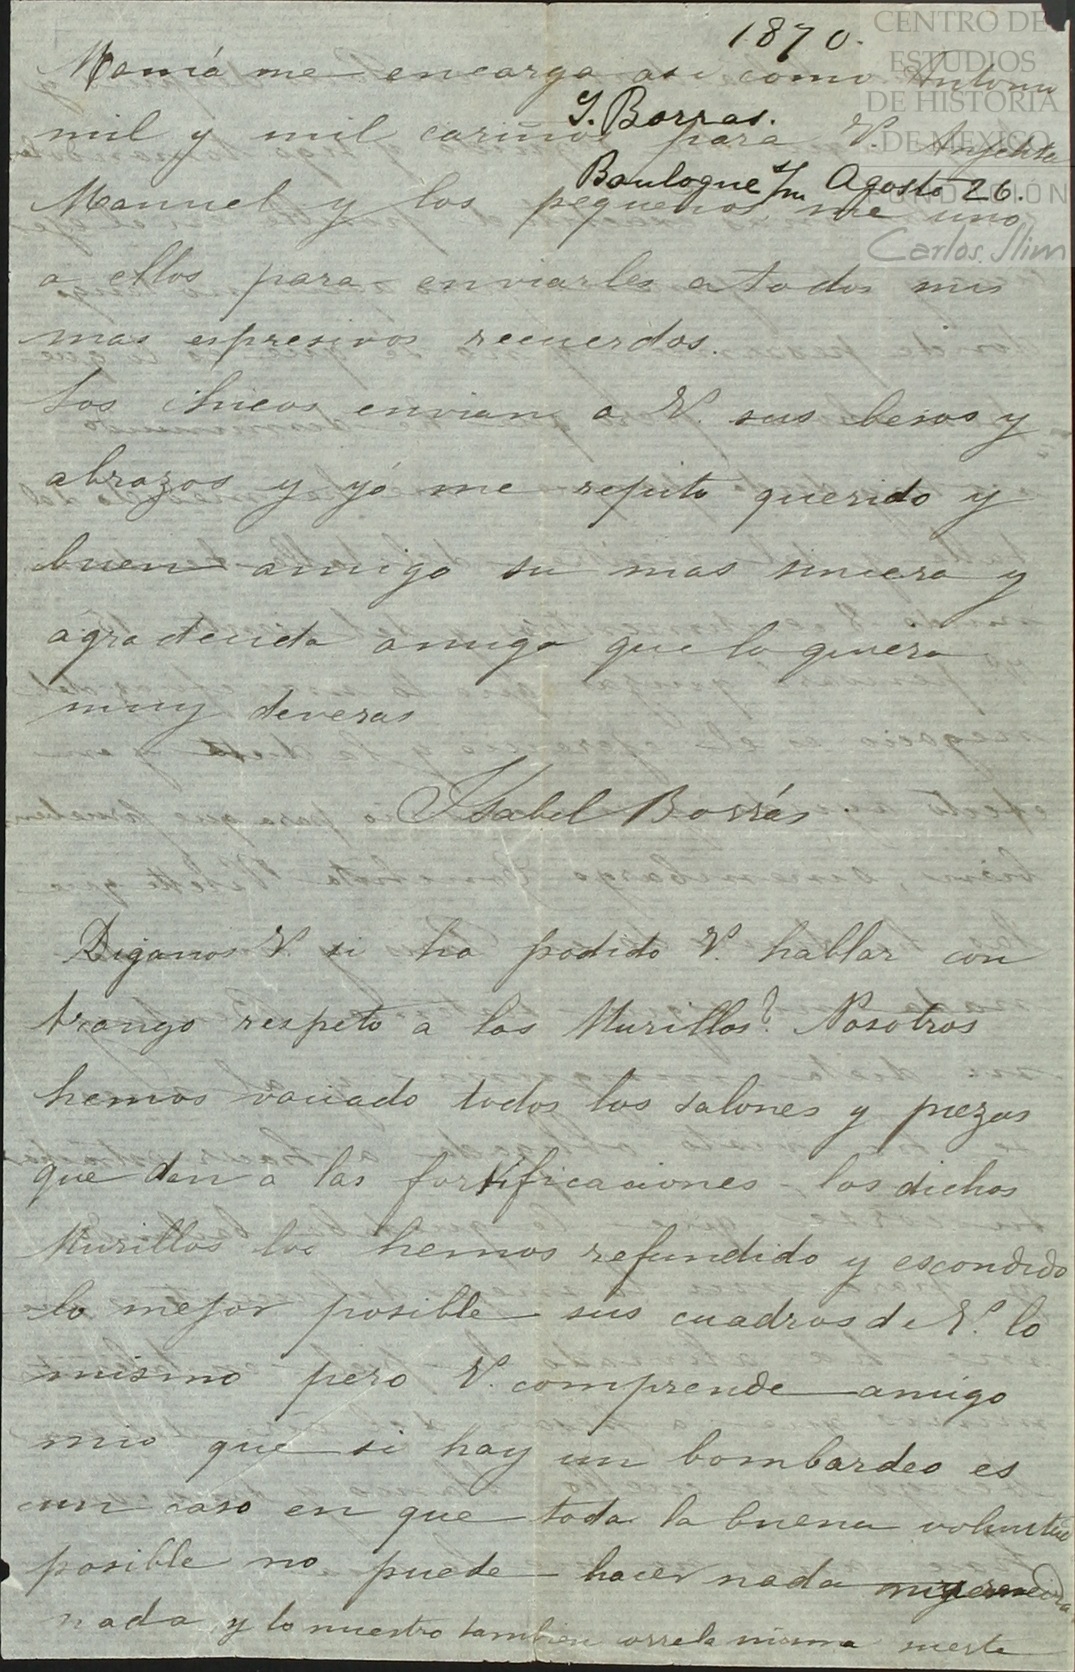 1870.
CENTRO DE
ESTUDIOS
DE HISTORIA
DE MEXICO
FUNDACIÓN
Carlos Slim
Mamá me encarga asi como Antonio
Y. Borras.
mil y mil cariños para V. Anjelita
Boulogne s/m Agosto 26.
Manuel y los pequeños, me uno
a ellos para enviarles a todos mis
mas espresivos recuerdos.
Los chicos envian a V. sus besos y
abrazos y yó me repito querido y
buen amigo su mas sincera y
agradecida amiga que lo quiere
muy deveras
Ysabel Borrás
Diganos V. si ha podido V. hablar con
Arango respeto a los Murillos? Nosotros
hemos vaciado todos los salones y piezas
que dan a las fortificaciones - los dichos
Murillos los hemos refundido y escondido
lo mejor posible sus cuadros de V. lo
mismo pero V. comprende amigo
mio que si hay un bombardeo es
un caso en que toda la buena voluntad
posible no puede hacer nada
nada, y lo nuestro tambien corre la misma suerte